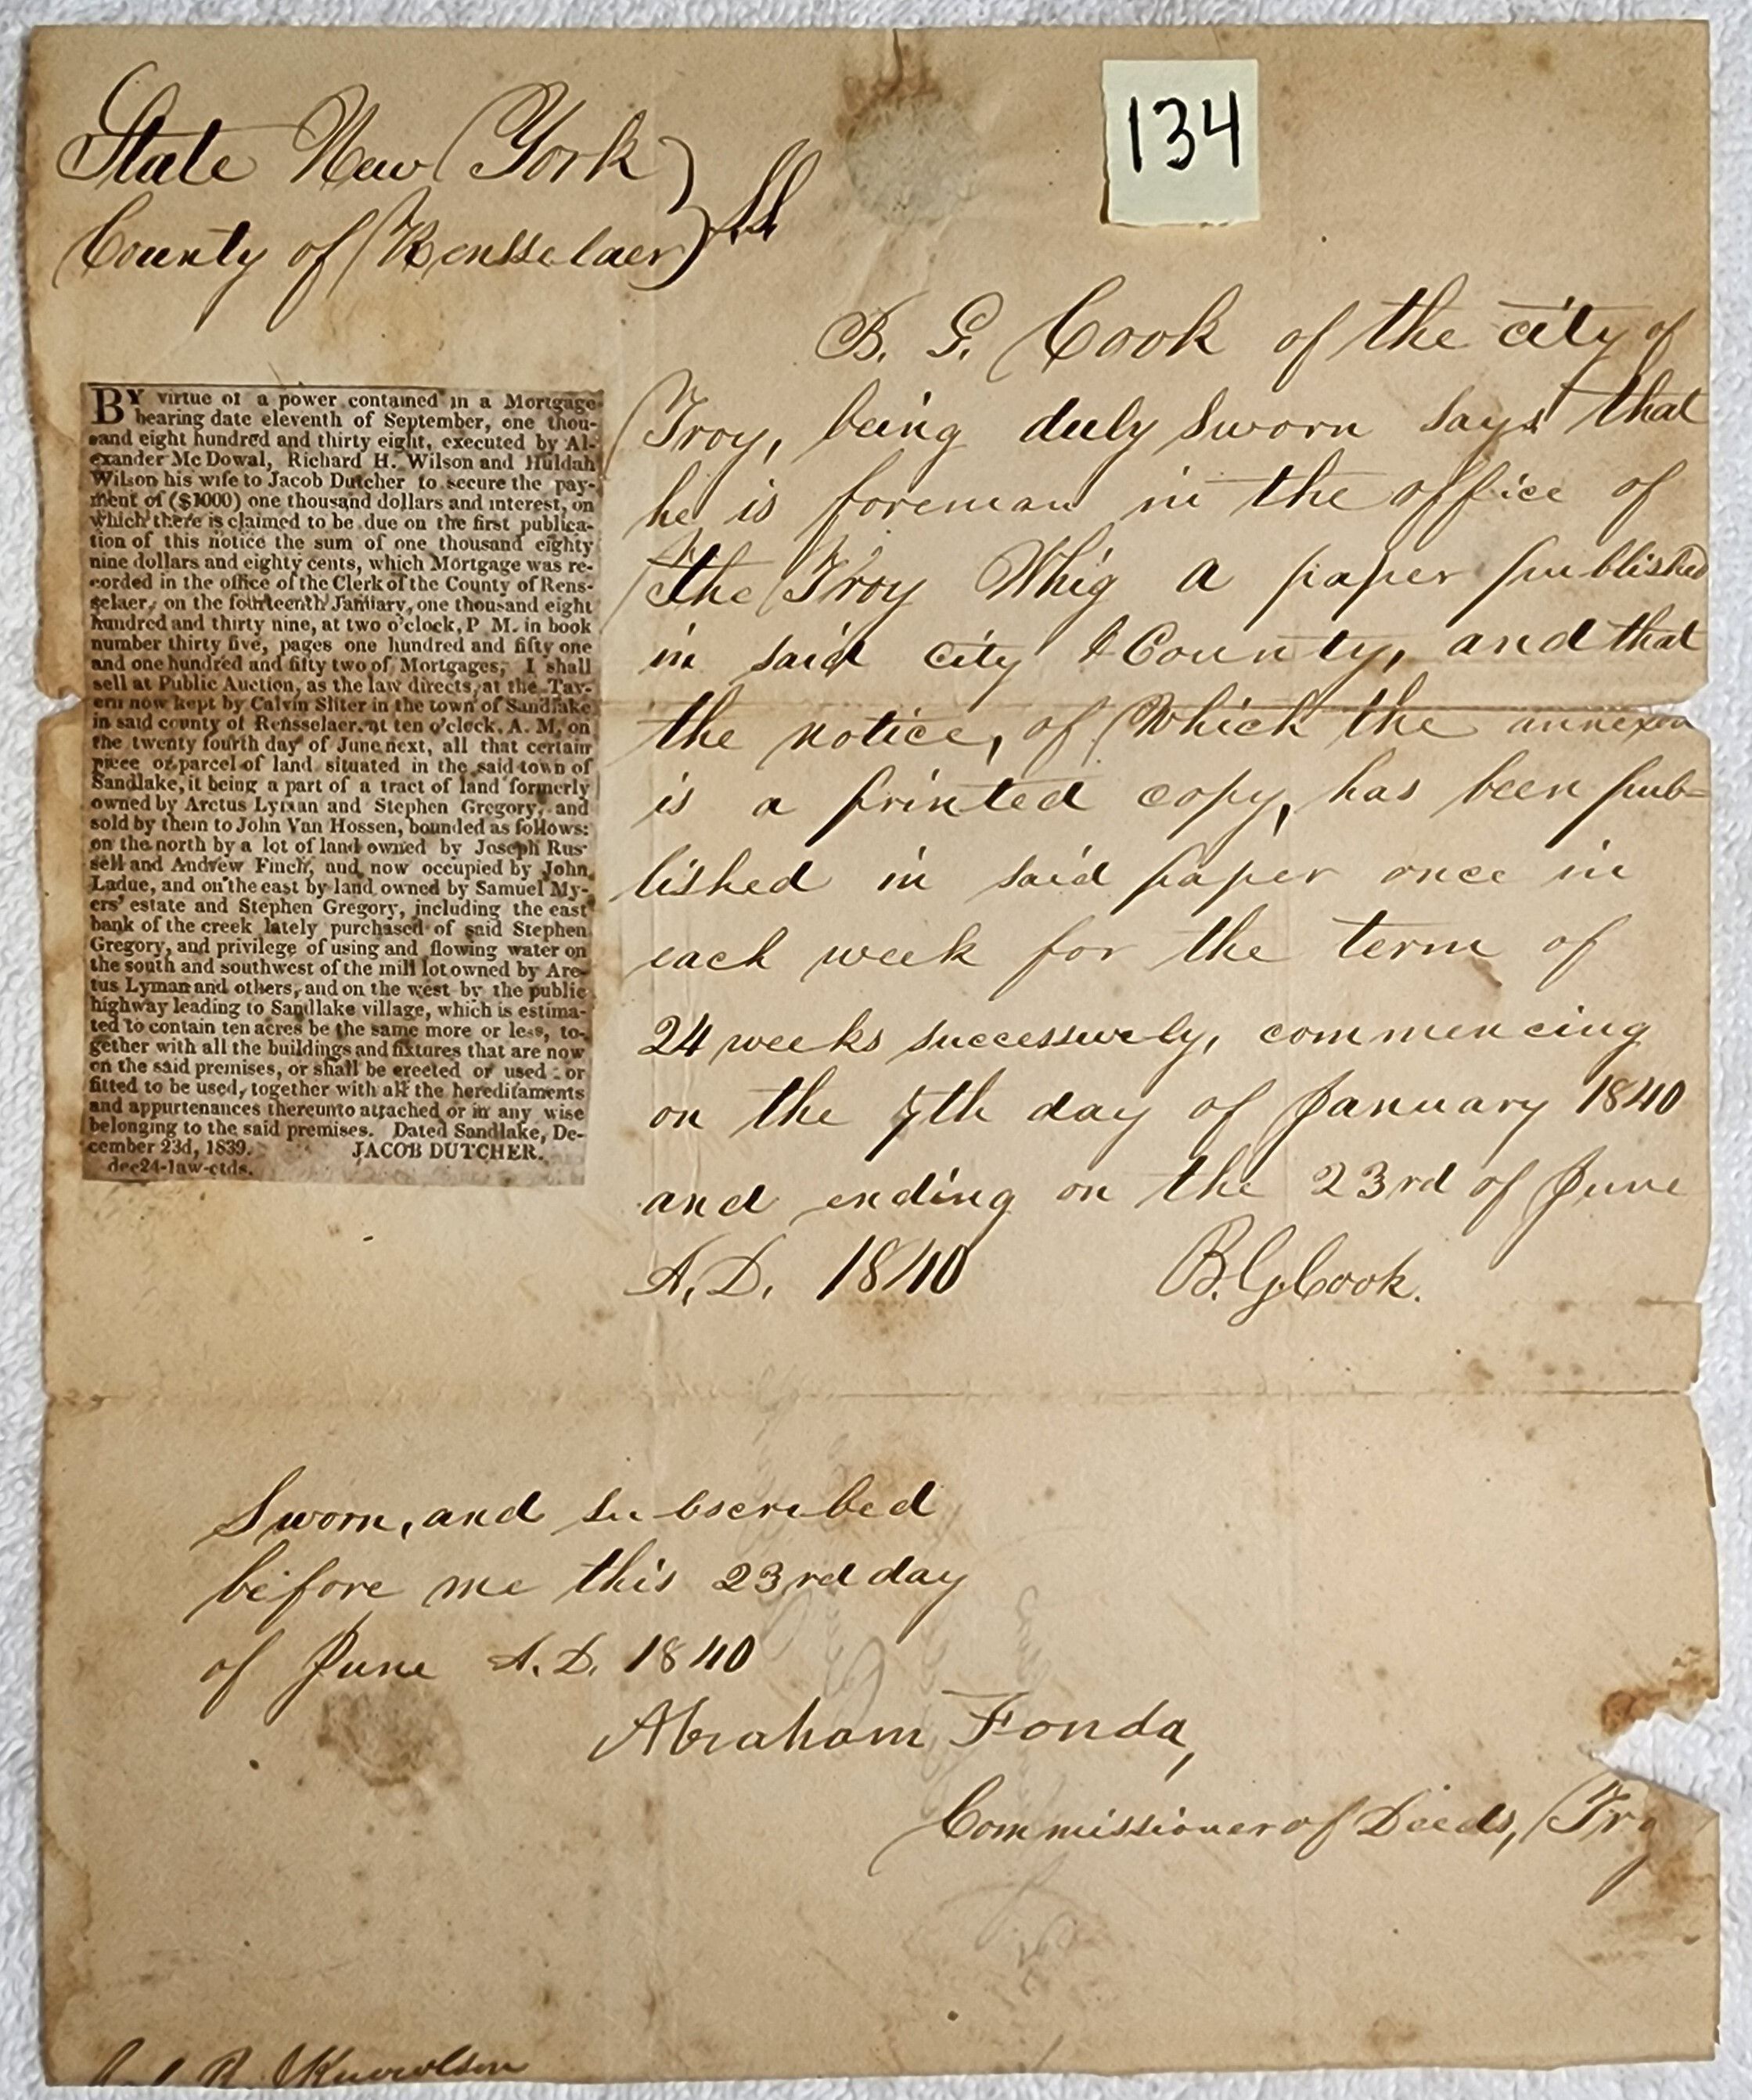 134
State New York )
County of Rensselaer ) ss
B. G. Cook of the city of
Troy, being duly sworn says that
he is foreman in the office of
The Troy Whig a paper published
in said city & County, and that
the notice, of which the annexed
is a printed copy, has been pub=
lished in said paper once in
each week for the term of
24 weeks successively, commencing
on the 7th day of January 1840
and ending on the 23rd of June
A.D. 1840 B. G. Cook.
BY virtue of a power contained in a Mortgage
bearing date eleventh of September, one thou-
sand eight hundred and thirty eight, executed by Al-
exander Mc Dowal, Richard H. Wilson and Huldah
Wilson his wife to Jacob Dutcher to secure the pay-
ment of ($1000) one thousand dollars and interest, on
which there is claimed to be due on the first publica-
tion of this notice the sum of one thousand eighty
nine dollars and eighty cents, which Mortgage was re-
corded in the office of the Clerk of the County of Rens-
selaer, on the fourteenth January, one thousand eight
hundred and thirty nine, at two o'clock, P. M. in book
number thirty five, pages one hundred and fifty one
and one hundred and fifty two of Mortgages, I shall
sell at Public Auction, as the law directs, at the Tav-
ern now kept by Calvin Sliter in the town of Sandlake
in said county of Rensselaer, at ten o'clock, A. M, on
the twenty fourth day of June next, all that certain
piece or parcel of land situated in the said town of
Sandlake, it being a part of a tract of land formerly
owned by Arctus Lyman and Stephen Gregory, and
sold by them to John Van Hossen, bounded as follows:
on the north by a lot of land owned by Joseph Rus-
sell and Andrew Finch, and now occupied by John
Ladue, and on the east by land owned by Samuel My-
ers' estate and Stephen Gregory, including the east
bank of the creek lately purchased of said Stephen
Gregory, and privilege of using and flowing water on
the south and southwest of the mill lot owned by Are-
tus Lyman and others, and on the west by the public
highway leading to Sandlake village, which is estima-
ted to contain ten acres be the same more or less, to-
gether with all the buildings and fixtures that are now
on the said premises, or shall be erected or used or
fitted to be used, together with all the hereditaments
and appurtenances thereunto attached or in any wise
belonging to the said premises. Dated Sandlake, De-
cember 23d, 1839. JACOB DUTCHER.
dec24-law-ctds.
Sworn, and subscribed
before me this 23rd day
of June A.D. 1840
Abraham Fonda,
Commissioner of Deeds, Troy
R. Knowlson